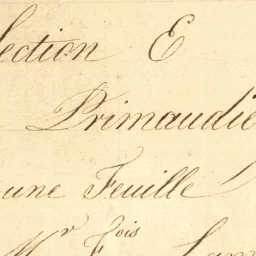 Section E
Primaudie
une Feuille
Mr Fois Lam